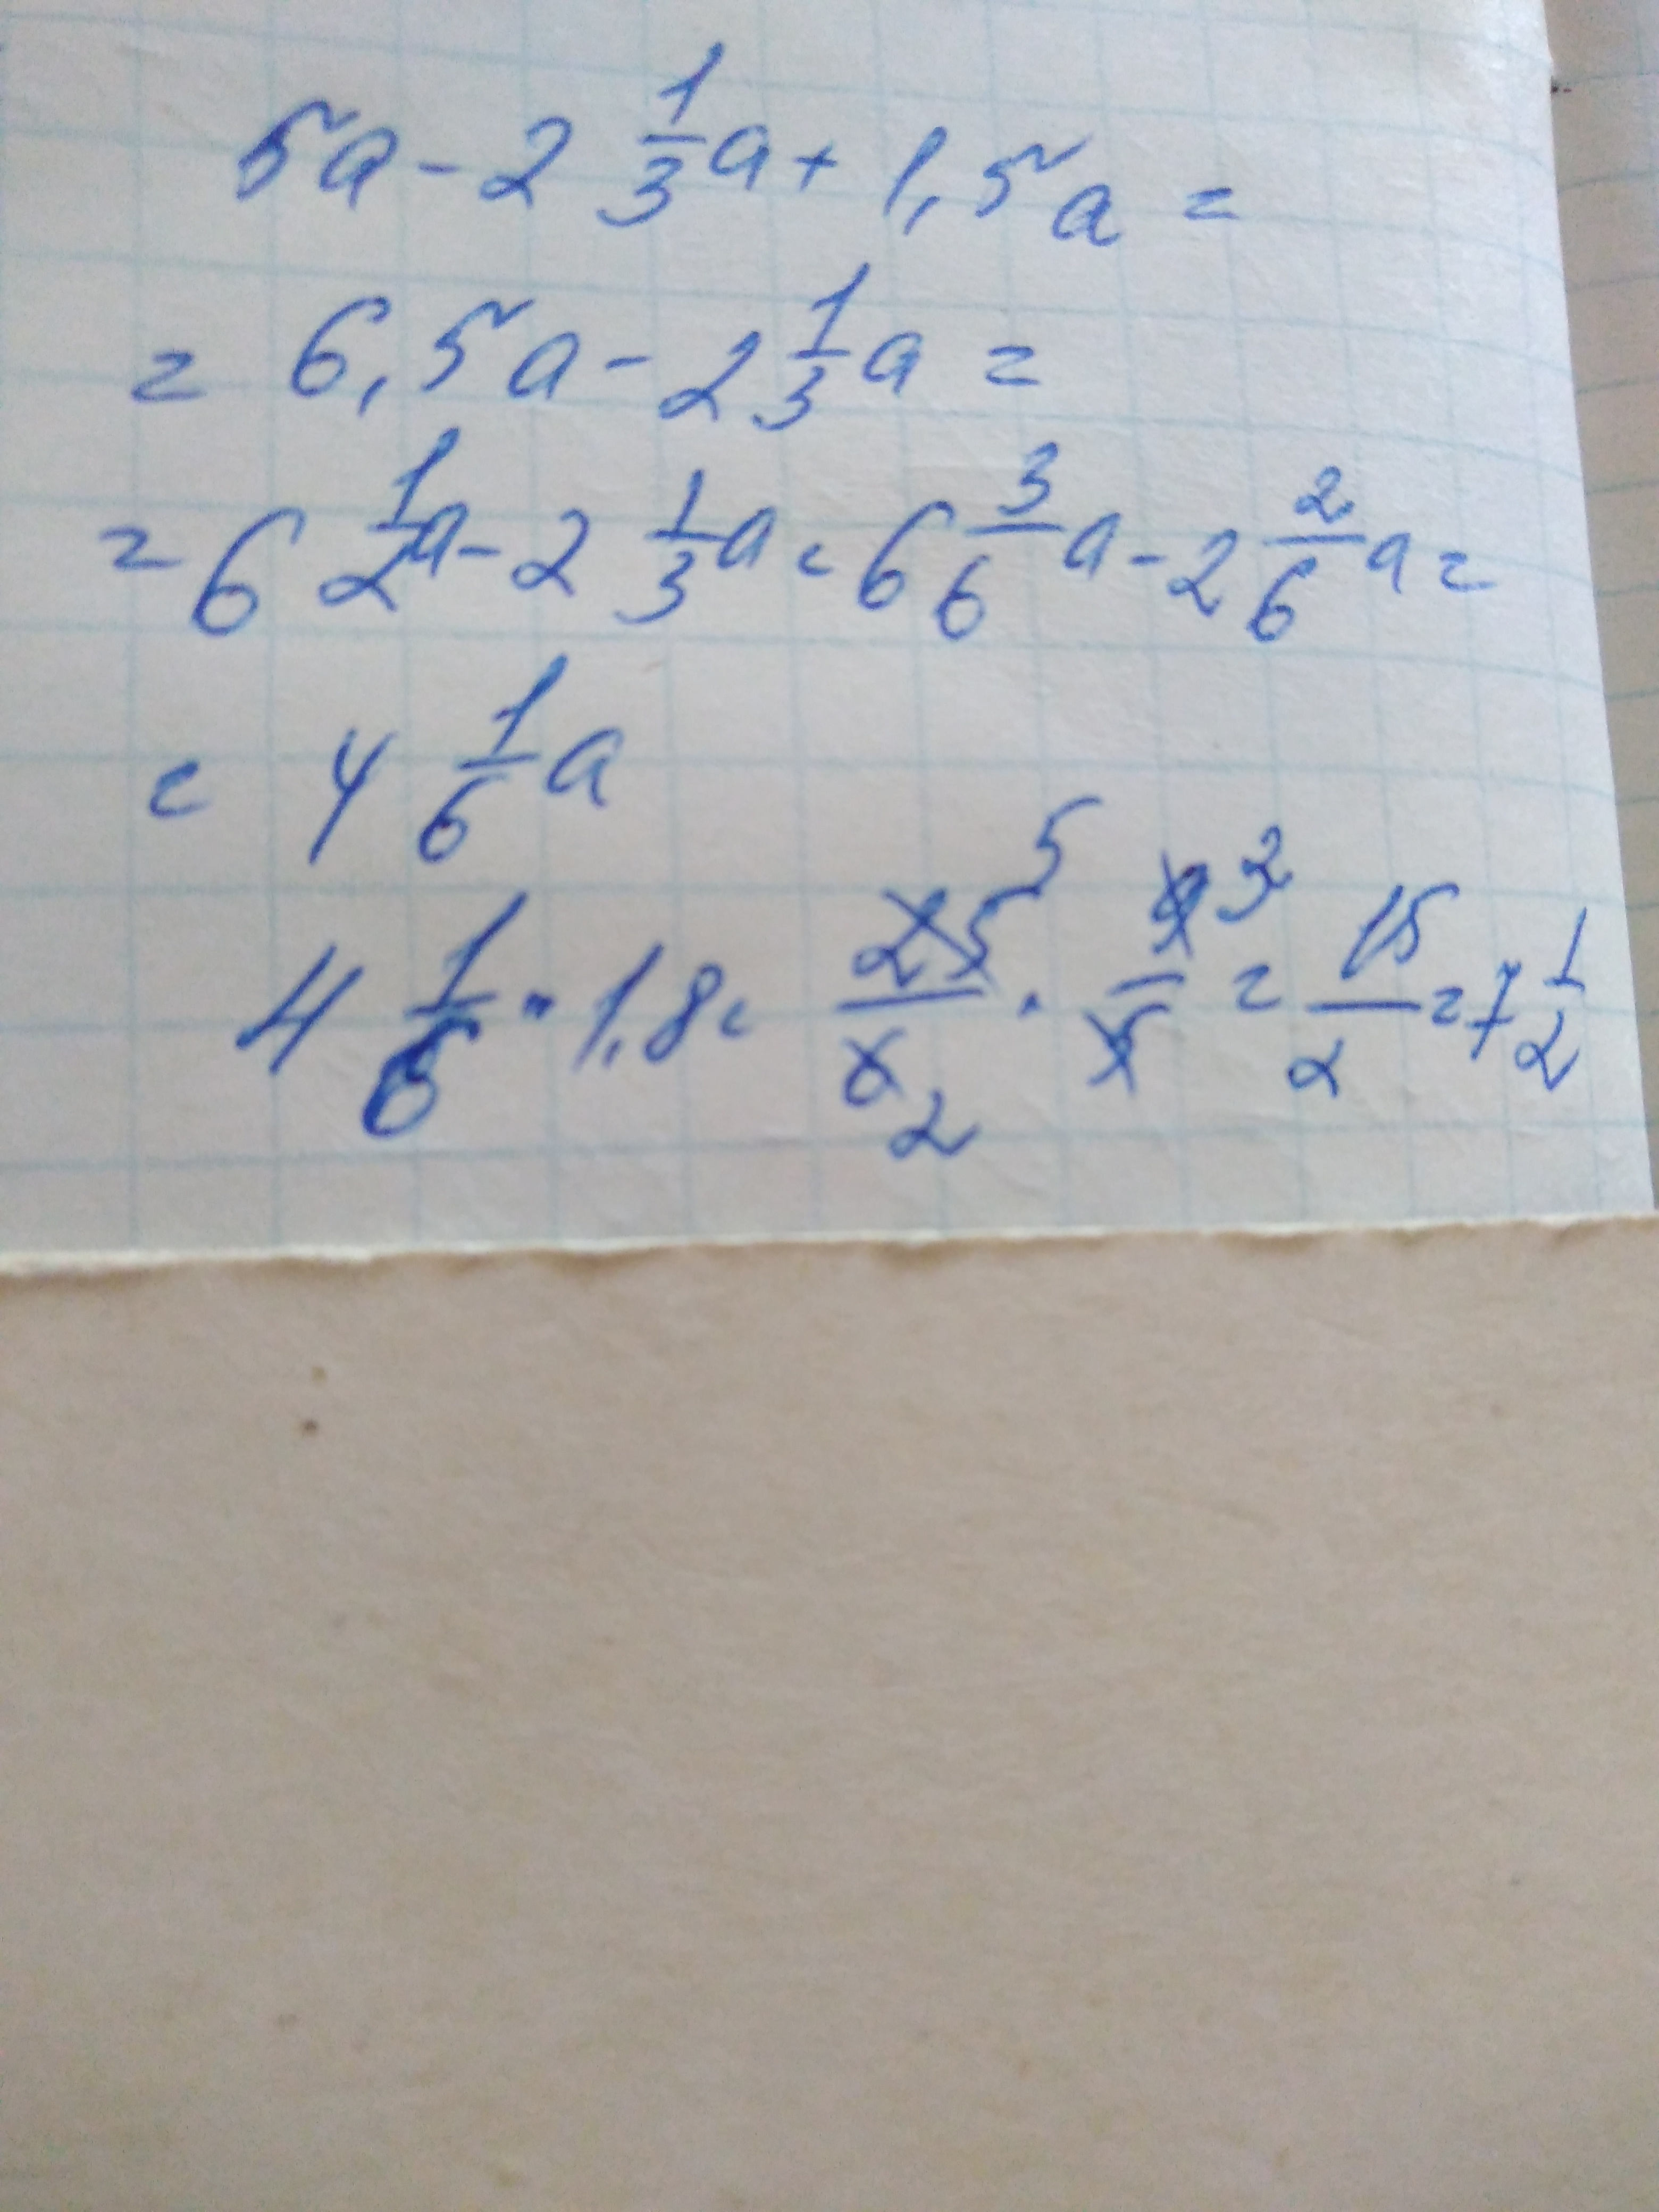 5a - 2 1/3 a + 1,5a =
= 6,5a - 2 1/3 a =
= 6 1/2 a - 2 1/3 a = 6 3/6 a - 2 2/6 a =
= 4 1/6 a
4 1/6 · 1,8 = 25 5 / 6 2 · 9 3 / 5 = 15/2 = 7 1/2